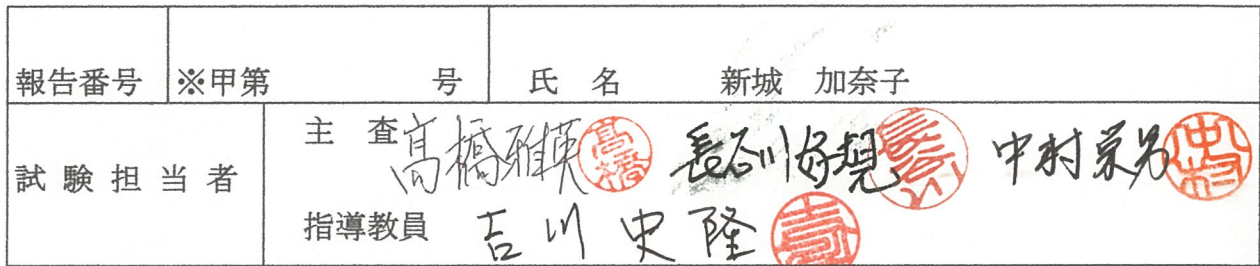 報告番号 ※甲第 号 氏 名 新城 加奈子
試験担当者
主 査 髙橋雅英 髙橋 長谷川好規 中村栄男 中村
指導教員 吉川史隆